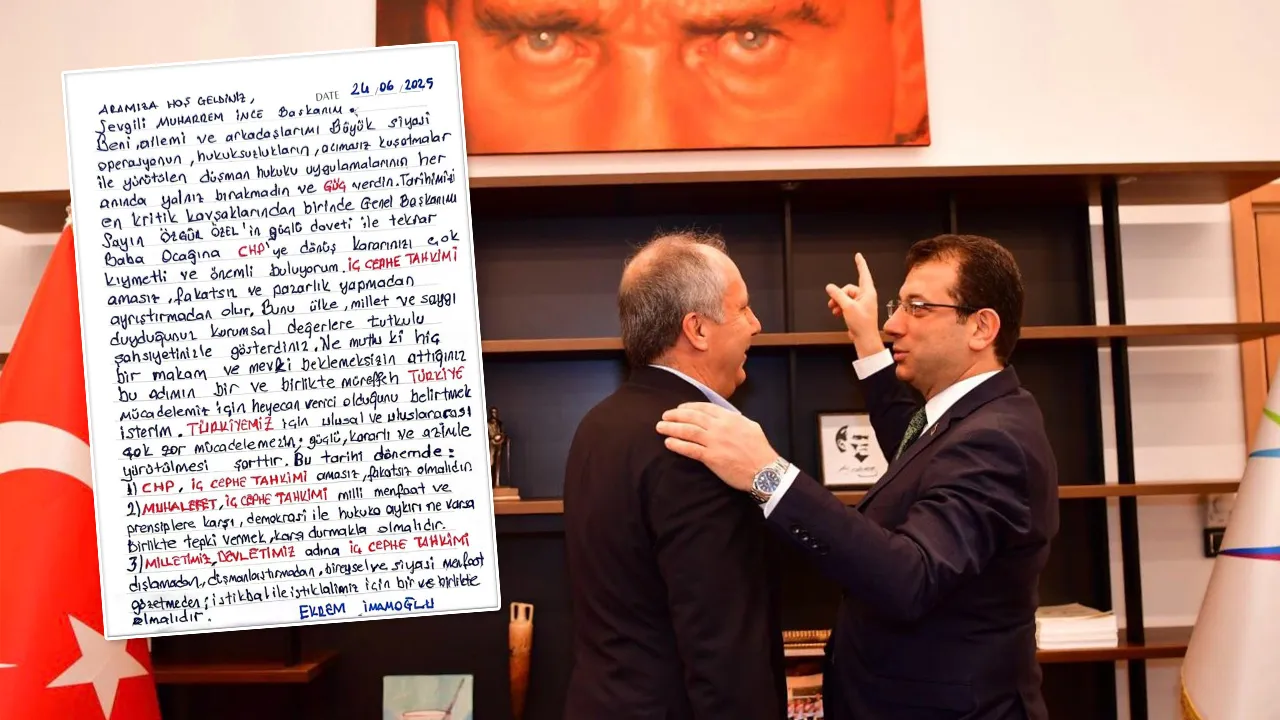 DATE 24/06/2025
ARAMIZA HOŞ GELDİNİZ,
Sevgili MUHARREM İNCE Başkanım.
Beni, ailemi ve arkadaşlarımı Büyük siyasi
operasyonun, hukuksuzlukların, acımasız kuşatmalar
ile yürütülen düşman hukuku uygulamalarının her
anında yalnız bırakmadın ve GÜÇ verdin. Tarihimizi
en kritik kavşaklarından birinde Genel Başkanım
Sayın ÖZGÜR ÖZEL'in güçlü daveti ile tekrar
Baba Ocağına CHP'ye dönüş kararınızı çok
kıymetli ve önemli buluyorum. İÇ CEPHE TAHKİMİ
amasız, fakatsız ve pazarlık yapmadan
ayrıştırmadan olur, Bunu ülke, millet ve saygı
duyduğunuz kurumsal değerlere tutkulu
şahsiyetinizle gösterdiniz. Ne mutlu ki hiç
bir makam ve mevki beklemeksizin attığınız
bu adımın bir ve birlikte müreffeh TÜRKİYE
mücadelemiz için heyecan verici olduğunu belirtmek
isterim. TÜRKİYEMİZ için ulusal ve uluslararası
çok zor mücadelemezin; güçlü, kararlı ve azimle
yürütülmesi şarttır. Bu tarihi dönemde:
1) CHP, İÇ CEPHE TAHKİMİ amasız, fakatsız olmalıdır
2) MUHALEFET, İÇ CEPHE TAHKİMİ milli menfaat ve
prensiplere karşı, demokrasi ile hukuka aykırı ne varsa
birlikte tepki vermek, karşı durmakla olmalıdır.
3) MİLLETİMİZ, DEVLETİMİZ adına İÇ CEPHE TAHKİMİ
dışlamadan, düşmanlaştırmadan, bireysel ve siyasi menfaat
gözetmeden; istikbal ile istiklalimiz için bir ve birlikte
olmalıdır.
EKREM İMAMOĞLU